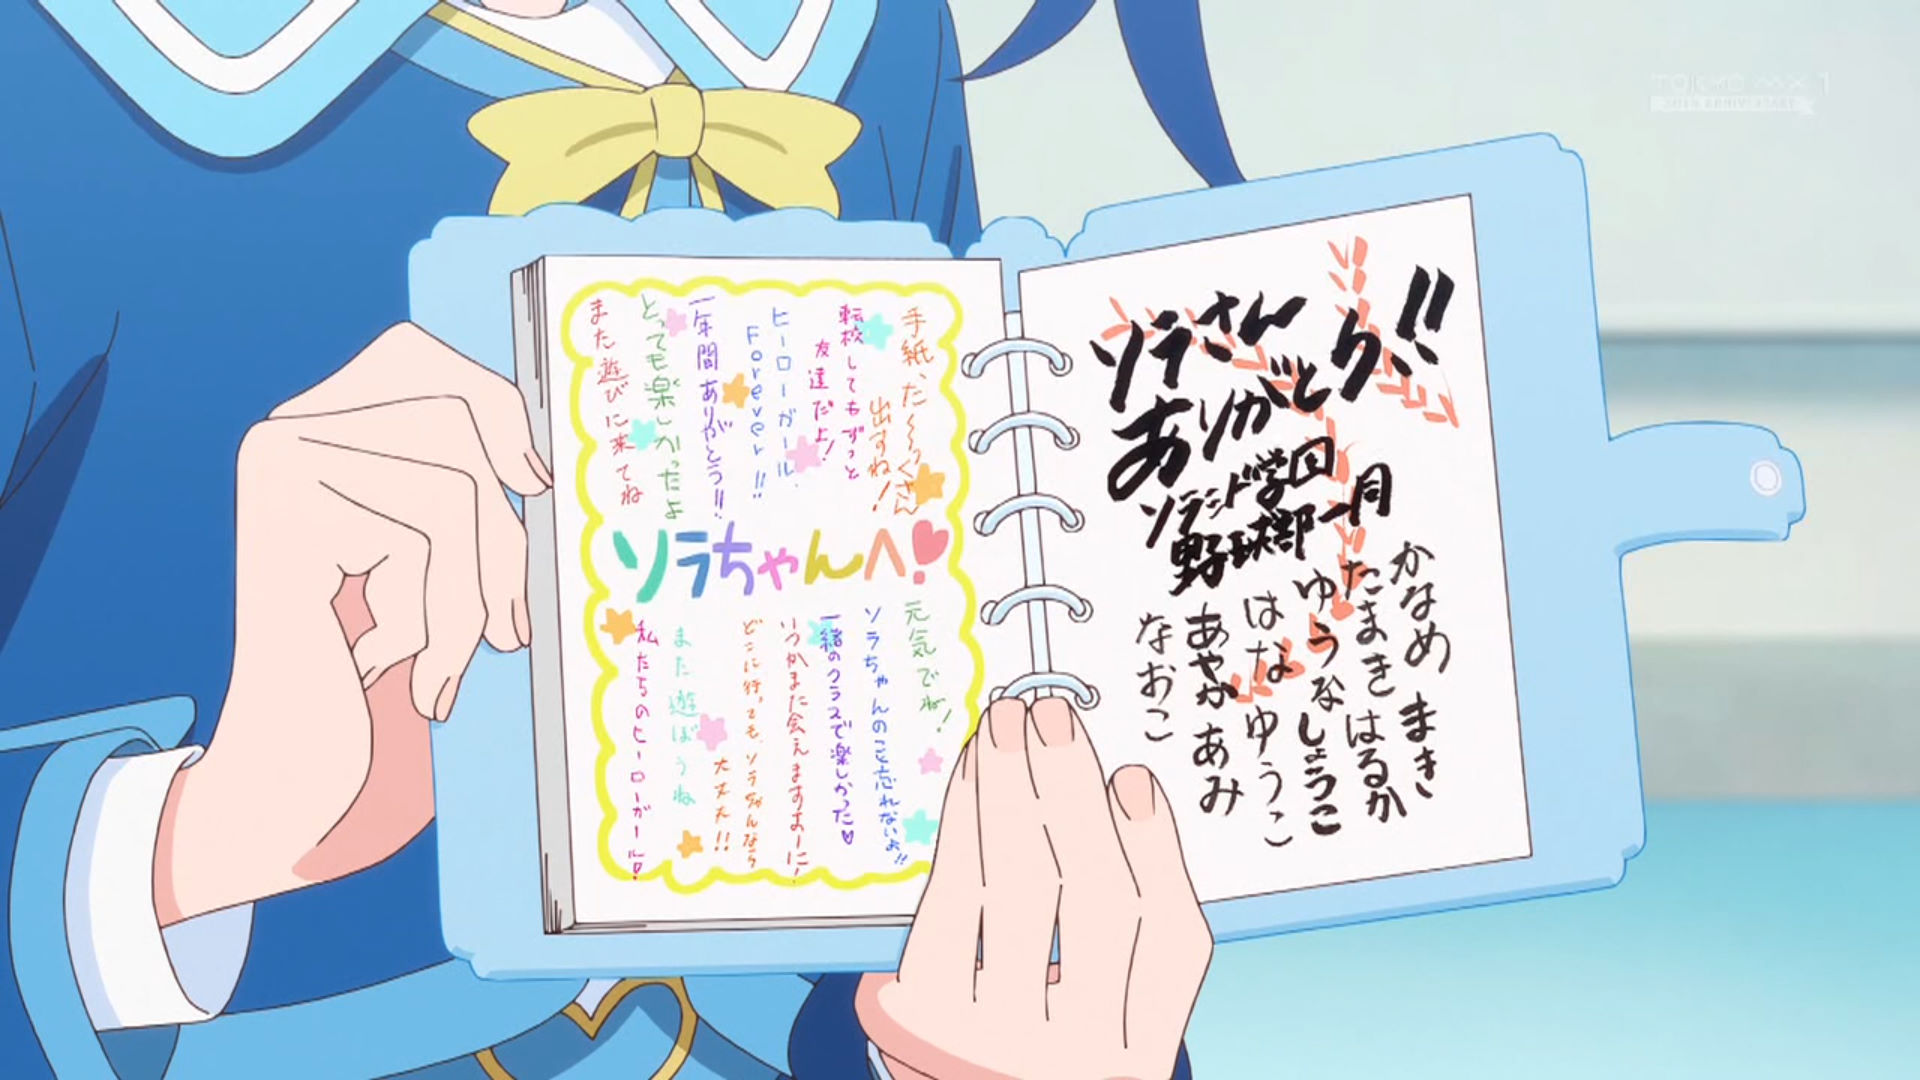 TOKYO MX 1
手紙、た〜〜っくさん
出すね!
転校してもずっと
友達だよ!
ヒーローガール
Forever!!
一年間ありがとう!!
とっても楽しかったよ
また遊びに来てね
ソラちゃんへ!
元気でね!
ソラちゃんのこと忘れないよ!!
一緒のクラスで楽しかった♡
いつかまた会えますように!
どこに行っても、ソラちゃんなら
大丈夫!!
また遊ぼうね
私たちのヒーローガール!
ソラさん
ありがとう!!
ソラシド学園
野球部一同
かなめ まきき
たまき はるか
ゆうな しょうこ
はな ゆうこ
あやか あみ
なおこ